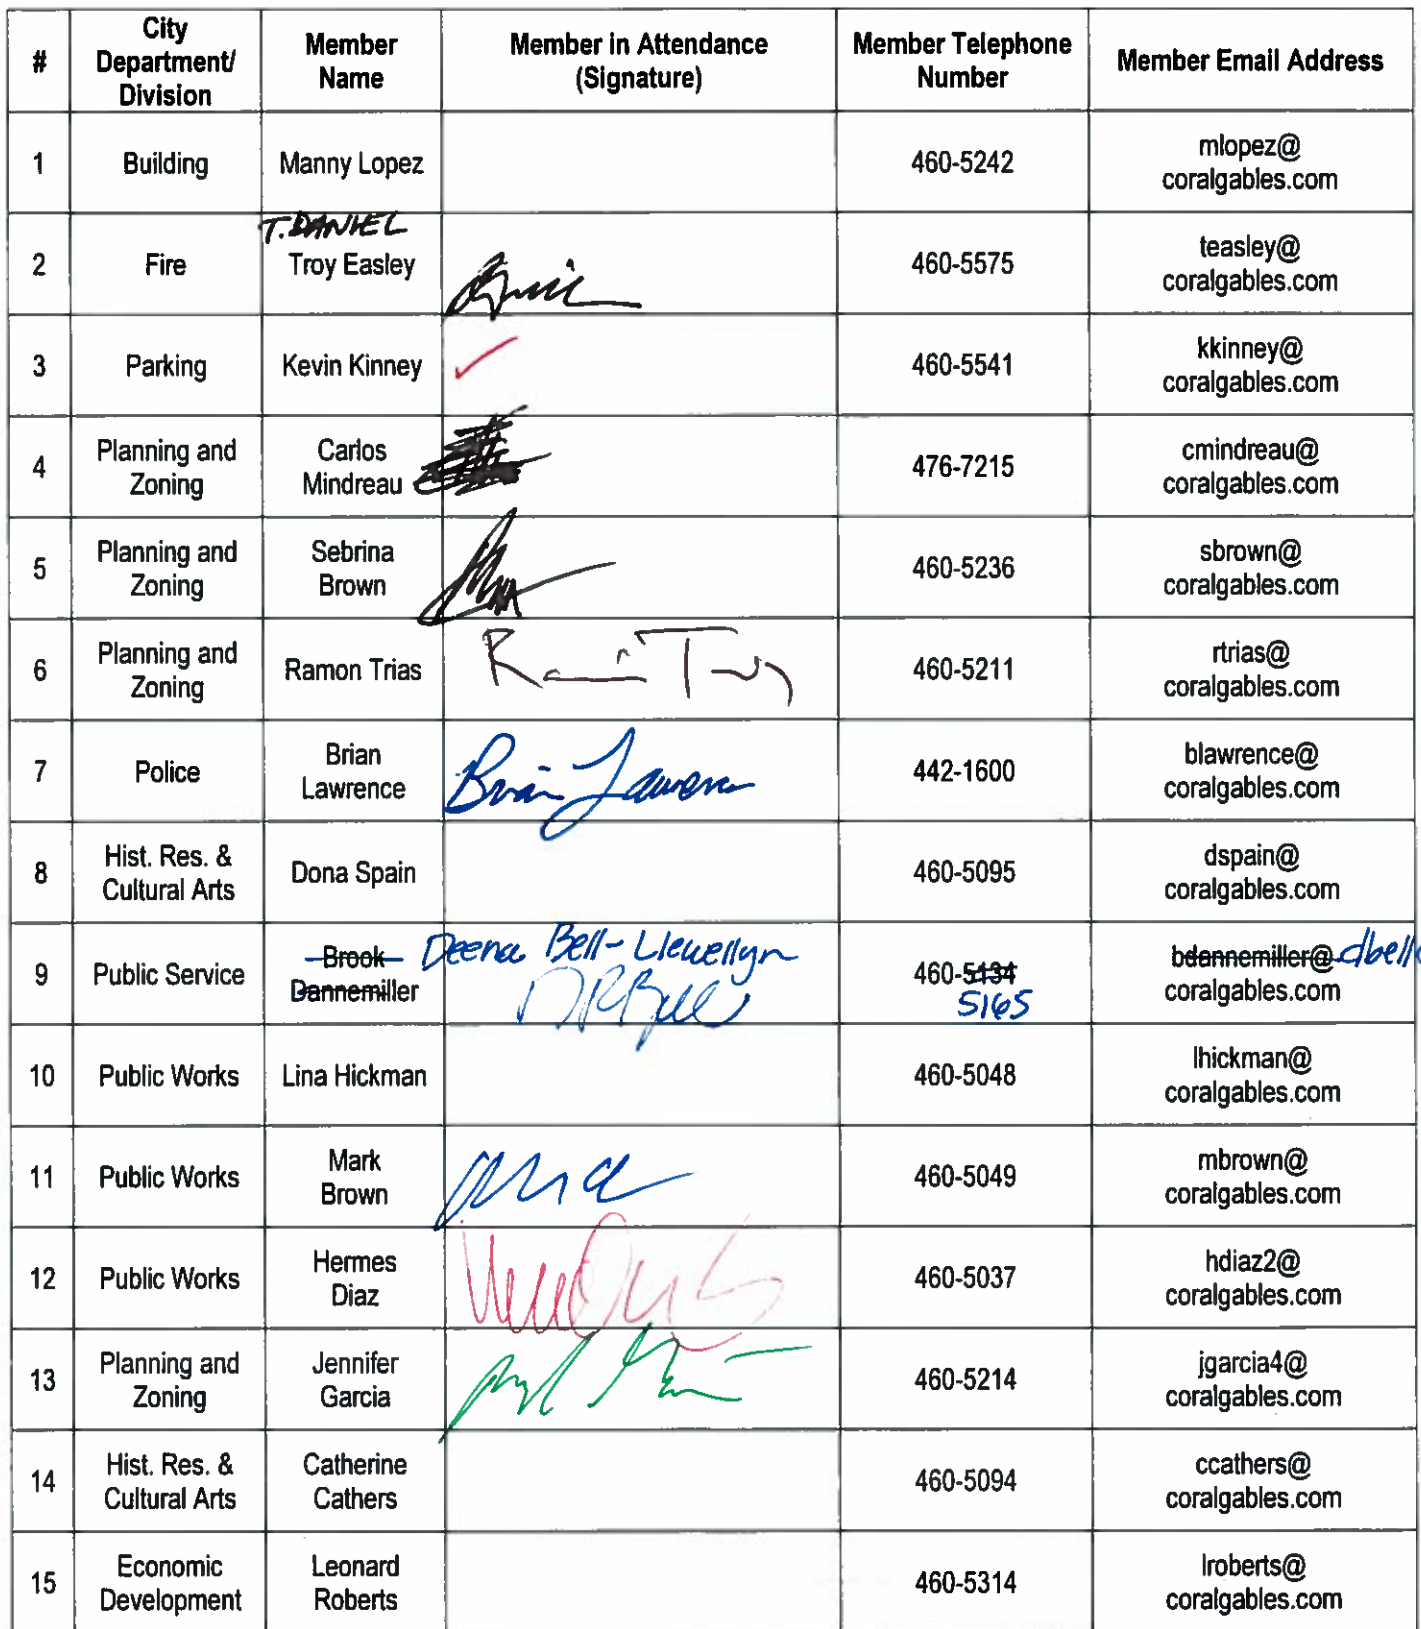 # City Department/ Division Member Name Member in Attendance (Signature) Member Telephone Number Member Email Address
1 Building Manny Lopez 460-5242 mlopez@ coralgables.com
T. DANIEL
2 Fire Troy Easley 460-5575 teasley@ coralgables.com
3 Parking Kevin Kinney ✓ 460-5541 kkinney@ coralgables.com
4 Planning and Zoning Carlos Mindreau 476-7215 cmindreau@ coralgables.com
5 Planning and Zoning Sebrina Brown 460-5236 sbrown@ coralgables.com
6 Planning and Zoning Ramon Trias Ramon Trias 460-5211 rtrias@ coralgables.com
7 Police Brian Lawrence Brian Lawrence 442-1600 blawrence@ coralgables.com
8 Hist. Res. & Cultural Arts Dona Spain 460-5095 dspain@ coralgables.com
9 Public Service Brook Dannemiller Deena Bell-Llewellyn DRBell 460-5134 5165 bdannemiller@ dbell coralgables.com
10 Public Works Lina Hickman 460-5048 lhickman@ coralgables.com
11 Public Works Mark Brown 460-5049 mbrown@ coralgables.com
12 Public Works Hermes Diaz 460-5037 hdiaz2@ coralgables.com
13 Planning and Zoning Jennifer Garcia 460-5214 jgarcia4@ coralgables.com
14 Hist. Res. & Cultural Arts Catherine Cathers 460-5094 ccathers@ coralgables.com
15 Economic Development Leonard Roberts 460-5314 lroberts@ coralgables.com